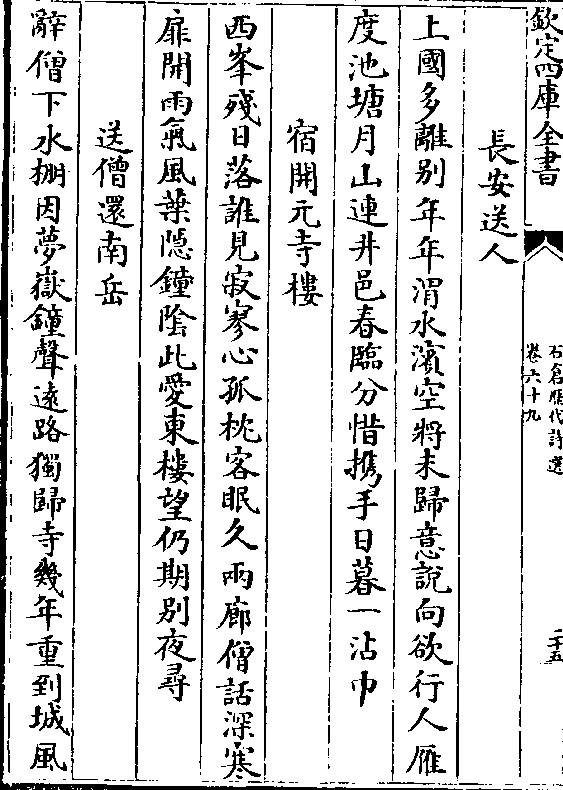 欽定四庫全書
石倉歷代詩選
卷六十九
二十五
長安送人
上國多離别年年渭水濱空將未歸意說向欲行人雁
度池塘月山連井邑春臨分惜攜手日暮一沾巾
宿開元寺樓
西峯殘日落誰見寂寥心孤枕客眠久兩廊僧話深寒
扉開雨氣風葉隱鐘隂此愛東樓望仍期別夜尋
送僧還南岳
辭僧下水棚因夢嶽鐘聲遠路獨歸寺幾年重到城風